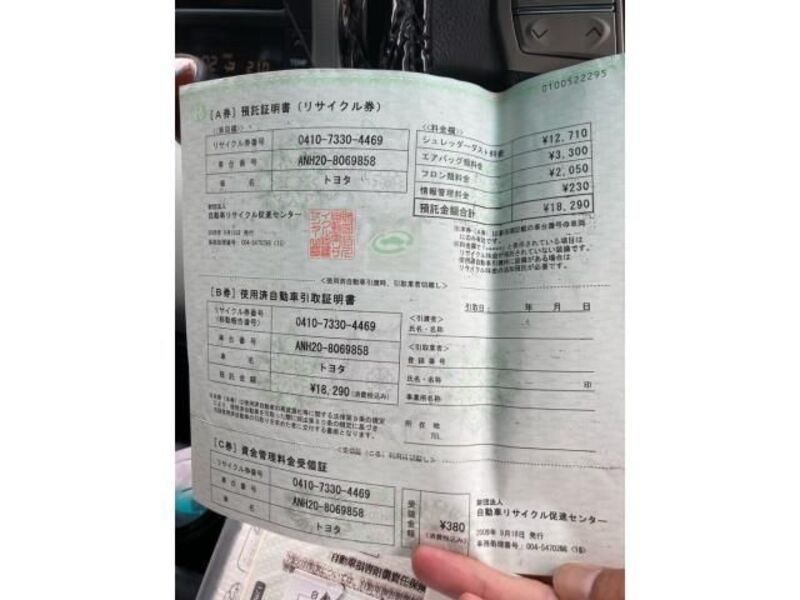 0100522295
[A券] 預託証明書 (リサイクル券)
<車両欄>
リサイクル券番号 0410-7330-4469
車台番号 ANH20-8069858
車名 トヨタ
<料金欄>
シュレッダーダスト料金 ¥12,710
エアバッグ類料金 ¥3,300
フロン類料金 ¥2,050
情報管理料金 ¥230
預託金額合計 ¥18,290
財団法人
自動車リサイクル促進センター
<使用済自動車引渡時、引取業者切離し>
[B券] 使用済自動車引取証明書
引取日: 年 月 日
リサイクル券番号
(移動報告番号) 0410-7330-4469
車台番号 ANH20-8069858
車名 トヨタ
預託金額 ¥18,290 (消費税込み)
<引渡者>
氏名・名称
<引取業者>
登録番号
氏名・名称 印
事業所名称
所在地
TEL
[C券] 資金管理料金受領証
リサイクル券番号 0410-7330-4469
車台番号 ANH20-8069858
車名 トヨタ
受領金額 ¥380
(消費税込み)
財団法人
自動車リサイクル促進センター
自動車損害賠償責任保険